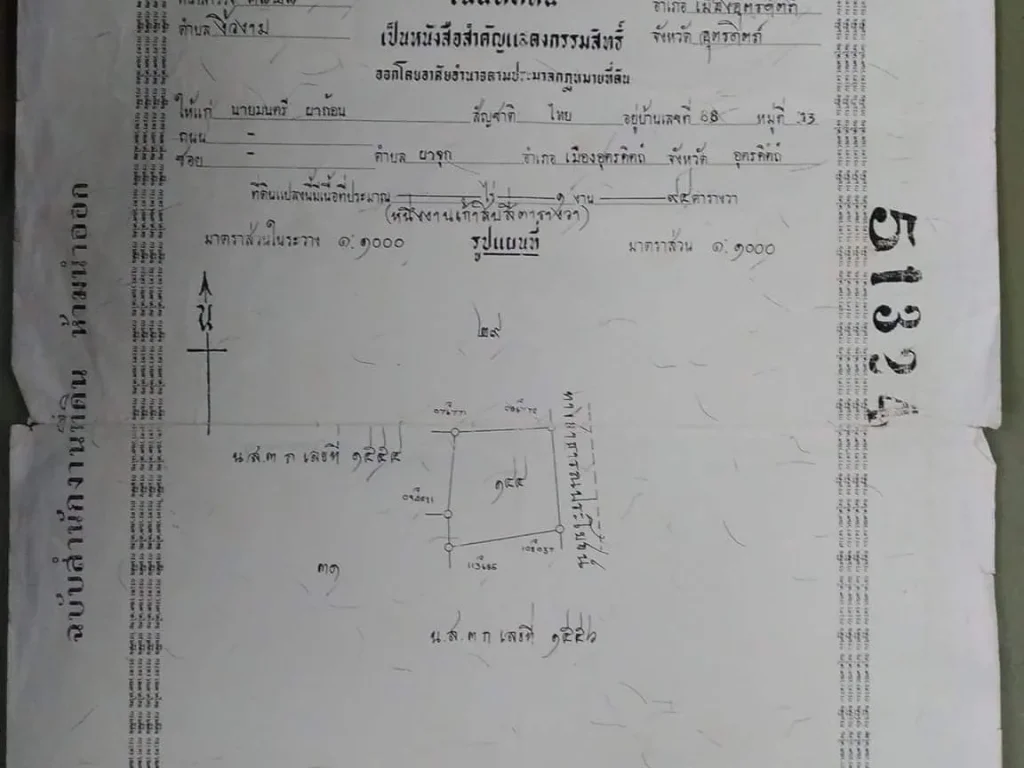 ตำบล งิ้วงาม
อำเภอ เมืองอุตรดิตถ์
จังหวัด อุตรดิตถ์
เป็นหนังสือสำคัญแสดงกรรมสิทธิ์
ออกโดยอาศัยอำนาจตามประมวลกฎหมายที่ดิน
ให้แก่ นายมนตรี ผาก้อน สัญชาติ ไทย อยู่บ้านเลขที่ 68 หมู่ที่
ถนน -
ซอย - ตำบล ผาจุก อำเภอ เมืองอุตรดิตถ์ จังหวัด อุตรดิตถ์
ที่ดินแปลงนี้มีเนื้อที่ประมาณ ไร่ ๑ งาน ๙๔ ตารางวา
(หนึ่งงานเก้าสิบสี่ตารางวา)
มาตราส่วนในระวาง ๑:๑๐๐๐ รูปแผนที่ มาตราส่วน ๑:๑๐๐๐
น
๒๙
น.ส.๓ ก เลขที่ ๑๕๕๔
๓๑
น.ส.๓ ก เลขที่ ๑๕๕๖
ฉบับสำนักงานที่ดิน ห้ามนำออก
51324